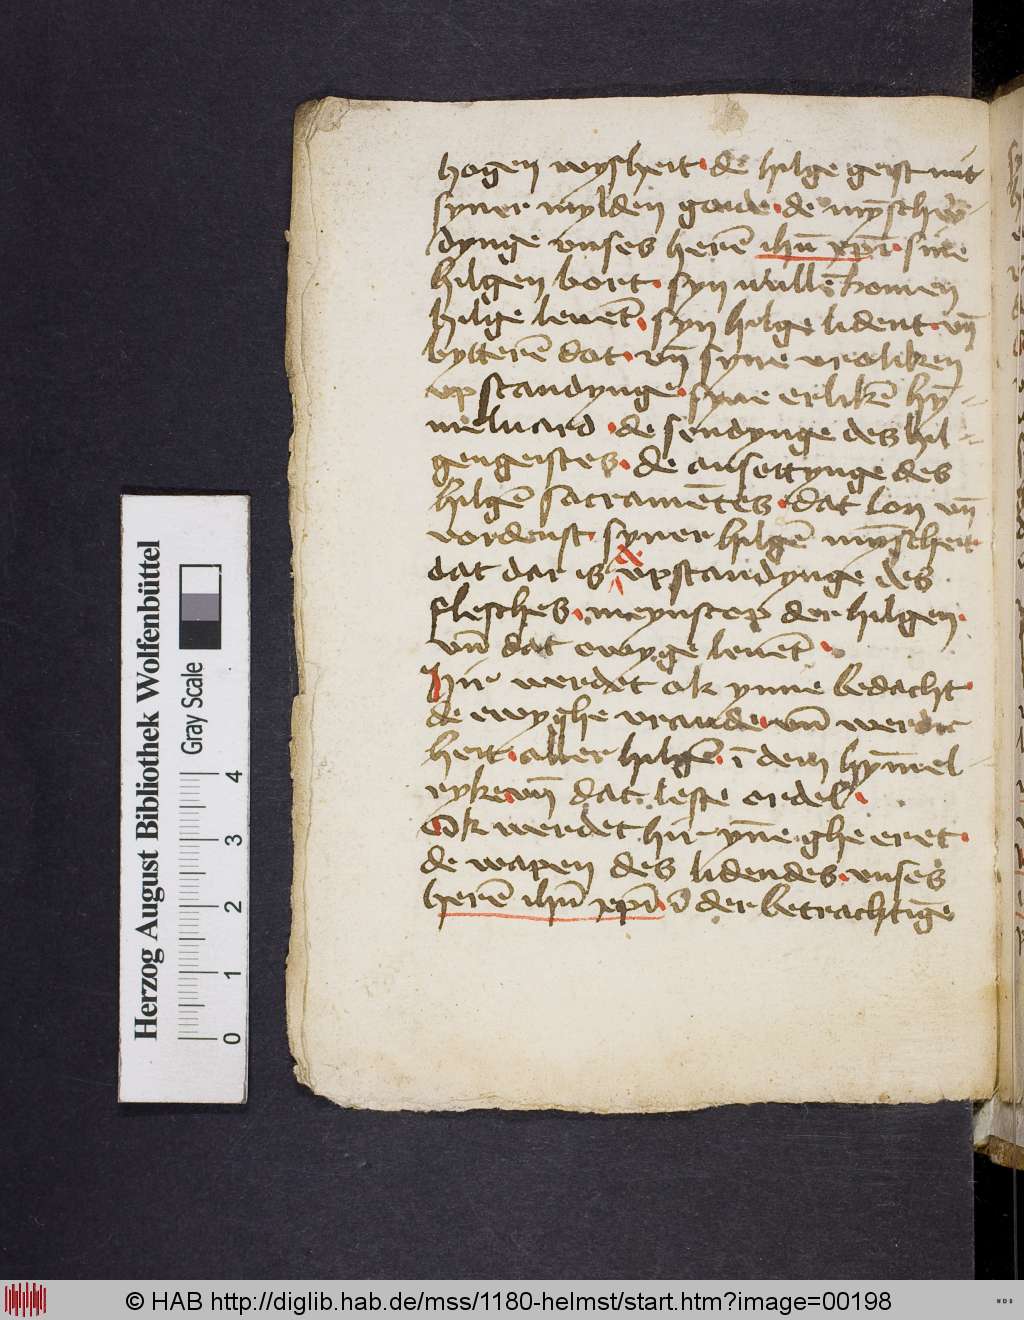 hogen wysheit · de hilge geist mit
syner mylden gaude · de mȳschew̄
dynge vnses herē ihū xp̄i · sine
hilgen bort · syn wullē komen
hilge leuēt · syn hilge lident · vn̄
bytterē dot · vn̄ syne vroliken
vpstandynge · syne erlikē hȳ-
meluard · de sendynge des hil-
gengeistes · de ansettynge des
hilgē sacramētes · dat lon vn̄
vordenst · syner hilgē mȳscheit ·
dat dar is de vpstandynge des
flesches · meynscop der hilgen ·
vn̄ dat ewyge leuēt ·
Hir werdet ok ynne bedacht ·
de ewyghe vraude · vn̄ werdic
heit · aller hilgē · ī dem hȳmel
ryke · vn̄ dat leste ordel ·
Ok werdet hir yn̄e gheeret ·
de wapen des lidendes · vnses
herē ihū xp̄i · ī der betrachtīge
Herzog August Bibliothek Wolfenbüttel
Gray Scale
0 1 2 3 4
© HAB http://diglib.hab.de/mss/1180-helmst/start.htm?image=00198